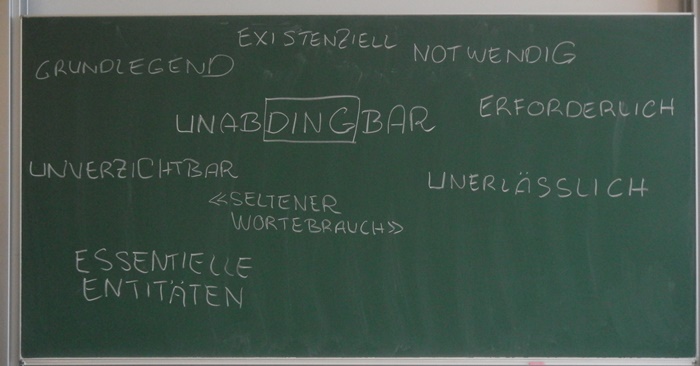 EXISTENZIELL
NOTWENDIG
GRUNDLEGEND
UNABDINGBAR
ERFORDERLICH
UNVERZICHTBAR
UNERLÄSSLICH
«SELTENER
WORTEBRAUCH»
ESSENTIELLE
ENTITÄTEN